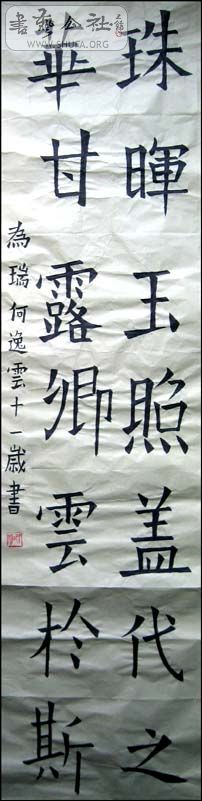 珠暉玉照盖代之
華甘露卿雲於斯
為瑞何逸雲十一歲書
書法公社
WWW.SHUFA.ORG